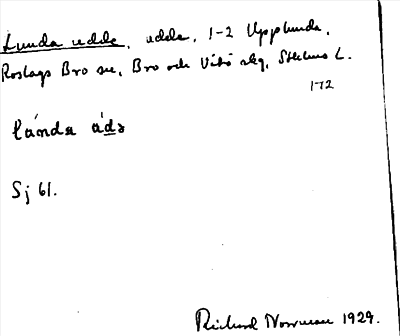 Lunda udde, udde, 1-2 Upplunda,
Roslags Bro sn, Bro och Vätö skg, Sthlms L.
1-12
lúnda ùdə
Sj 61.
Richard Norrman 1929.